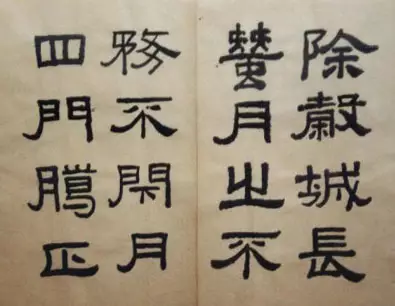 除穀城長
蠶月之不
務不閉月
四門臘正